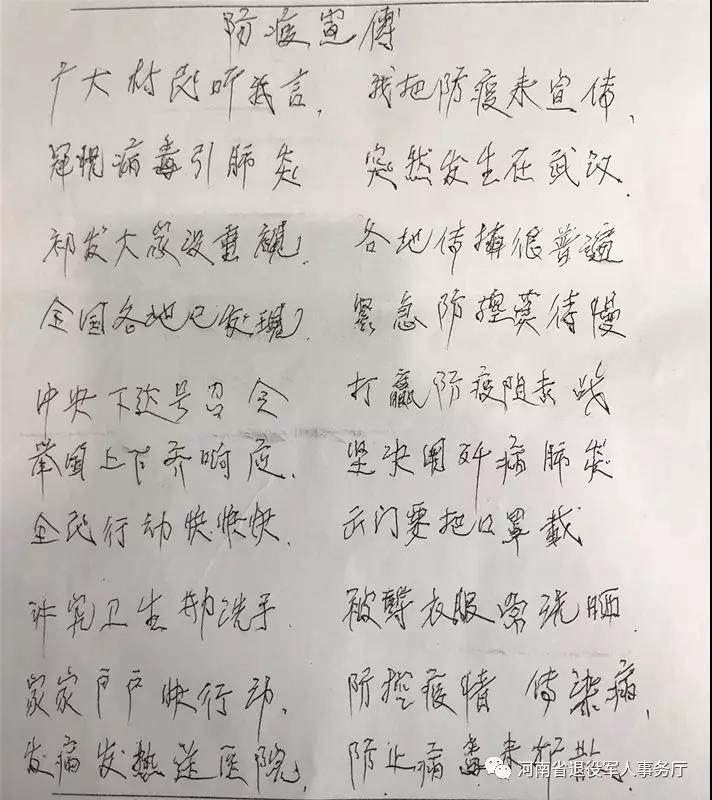 防疫宣傅
广大村民听我言， 我把防疫来宣传，
冠状病毒引肺炎 突然发生在武汉.
初发大家没重视， 各地传播很普遍
全国各地已发现， 紧急防控莫待慢
中央下达号召令 打赢防疫阻击战
举国上下齐响应. 坚决围歼病肺炎
全民行动快快快. 出门要把口罩戴
讲究卫生勤洗手. 被褥衣服常洗晒.
家家户户快行动， 防控疫情 传染病，
发病发热送医院， 防止病毒来
河南省退役军人事务厅